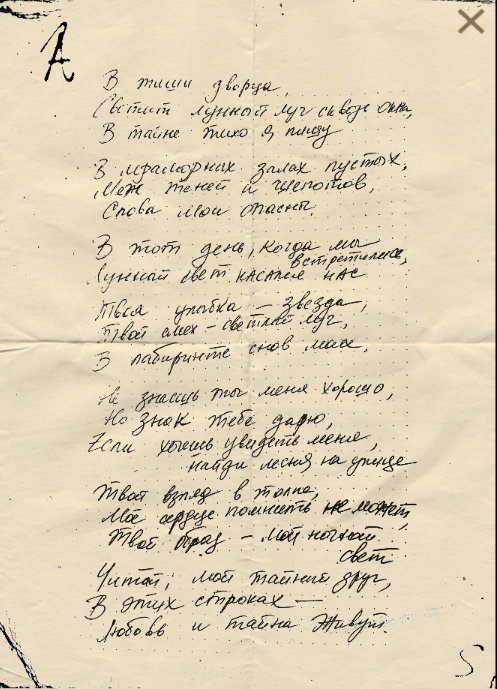 А
В тиши дворца,
Светит лунный луч сквозь окна,
В тайне тихо я пишу
В мраморных залах пустых,
Меж теней и шепотов,
Слова мои опасны.
В тот день, когда мы
встретились,
Лунный свет касался нас
Твоя улыбка — звезда,
Твой смех — светлый луч,
В лабиринте снов моих.
Не знаешь ты меня хорошо,
Но знак тебе дарю,
Если хочешь увидеть меня,
найди на улице
Твой взгляд в толпе,
Мое сердце помнить не может,
Твой образ — мой ночной
свет
Читай, мой тайный друг,
В этих строках —
Любовь и тайна живут.
5